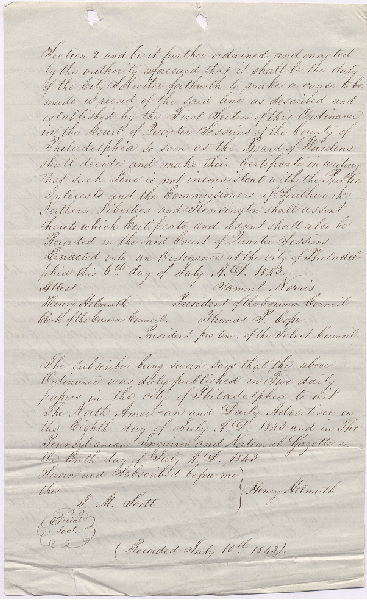 Section 2 and be it further ordained and enacted
by the authority aforesaid that it shall be the duty
of the City Solicitor forthwith to make a cause to be
made of record of the said line as described and
established by the First Section of this Ordinance
in the Court of Quarter Sessions of the County of
Philadelphia so soon as the Board of Wardens
shall decide and make their Certificate in writing
that such line is not inconsistent with the Public
Interests and the Commissioners of
Northern Liberties and Kensington shall assent
thereto which Certificate and Assent shall also be
Recorded in the said Court of Quarter Sessions
Enacted into an Ordinance at the City of Philadel-
phia this 6th day of July A.D. 1843.
Attest Samuel Norris
Henry Helmuth President of the Common Council
Clerk of the Common Council. Thomas P. Cope
President pro tem. of the Select Council
The Subscriber being sworn says that the above
Ordinance was duly published in Two daily
papers in the city of Philadelphia to wit
The North American and Daily Advertiser on
the Eighth day of July A.D. 1843 and in The
Pennsylvanian and National Gazette on
the day of July A.D. 1843
Sworn and Subscribed before me
this Henry Helmuth
J. M. Scott
Seal
(Recorded July 10th 1843).